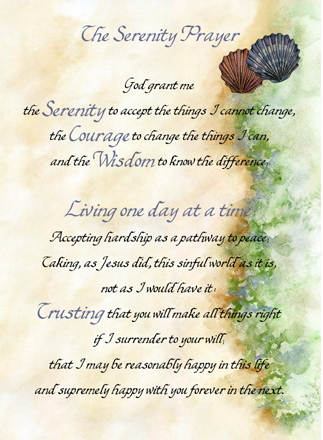 The Serenity Prayer
God grant me
the Serenity to accept the things I cannot change,
the Courage to change the things I can,
and the Wisdom to know the difference,
Living one day at a time
Accepting hardship as a pathway to peace,
Taking, as Jesus did, this sinful world as it is,
not as I would have it:
Trusting that you will make all things right
if I surrender to your will,
that I may be reasonably happy in this life
and supremely happy with you forever in the next.